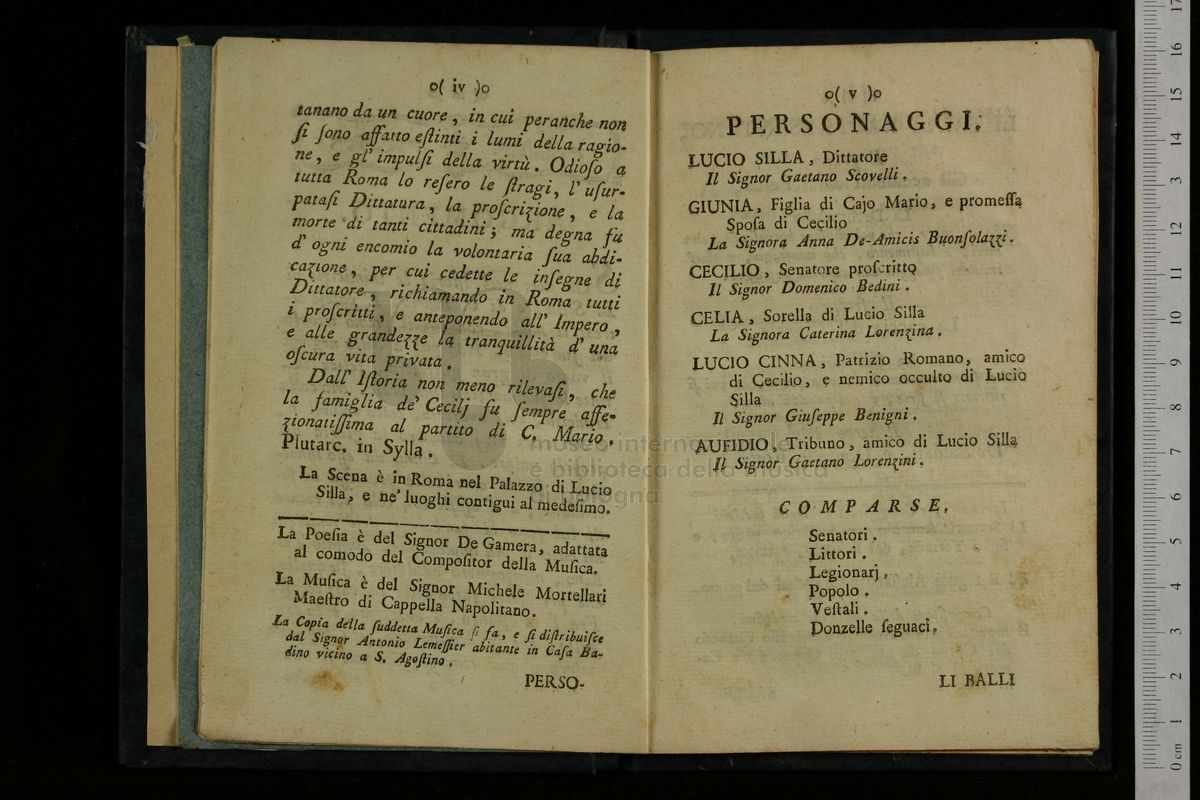 o( iv )o
tanano da un cuore, in cui peranche non
ſi ſono affatto eſtinti i lumi della ragio-
ne, e gl' impulſi della virtù. Odioſo a
tutta Roma lo reſero le ſtragi, l' uſur-
pataſi Dittatura, la proſcrizione, e la
morte di tanti cittadini; ma degna fu
d' ogni encomio la volontaria ſua abdi-
cazione, per cui cedette le inſegne di
Dittatore, richiamando in Roma tutti
i proſcritti, e anteponendo all' Impero,
e alle grandezze la tranquillità d' una
oſcura vita privata.
Dall' Iſtoria non meno rilevaſi, che
la famiglia de' Cecilj fu ſempre affe-
zionatiſſima al partito di C. Mario.
Plutarc. in Sylla.
La Scena è in Roma nel Palazzo di Lucio
Silla, e ne' luoghi contigui al medeſimo.
La Poeſia è del Signor De Gamera, adattata
al comodo del Compoſitor della Muſica.
La Muſica è del Signor Michele Mortellari
Maeſtro di Cappella Napolitano.
La Copia della ſuddetta Muſica ſi fa, e ſi diſtribuiſce
dal Signor Antonio Lemeſſier abitante in Caſa Ba-
dino vicino a S. Agoſtino.
PERSO-
o( v )o
PERSONAGGI.
LUCIO SILLA, Dittatore
Il Signor Gaetano Scovelli.
GIUNIA, Figlia di Cajo Mario, e promeſſa
Spoſa di Cecilio
La Signora Anna De-Amicis Buonſolazzi.
CECILIO, Senatore proſcritto
Il Signor Domenico Bedini.
CELIA, Sorella di Lucio Silla
La Signora Caterina Lorenzina.
LUCIO CINNA, Patrizio Romano, amico
di Cecilio, e nemico occulto di Lucio
Silla
Il Signor Giuſeppe Benigni.
AUFIDIO, Tribuno, amico di Lucio Silla
Il Signor Gaetano Lorenzini.
COMPARSE.
Senatori.
Littori.
Legionarj.
Popolo.
Veſtali.
Donzelle ſeguaci.
LI BALLI
museo internazionale
e biblioteca della musica
di bologna
0 cm 1 2 3 4 5 6 7 8 9 10 11 12 13 14 15 16 17